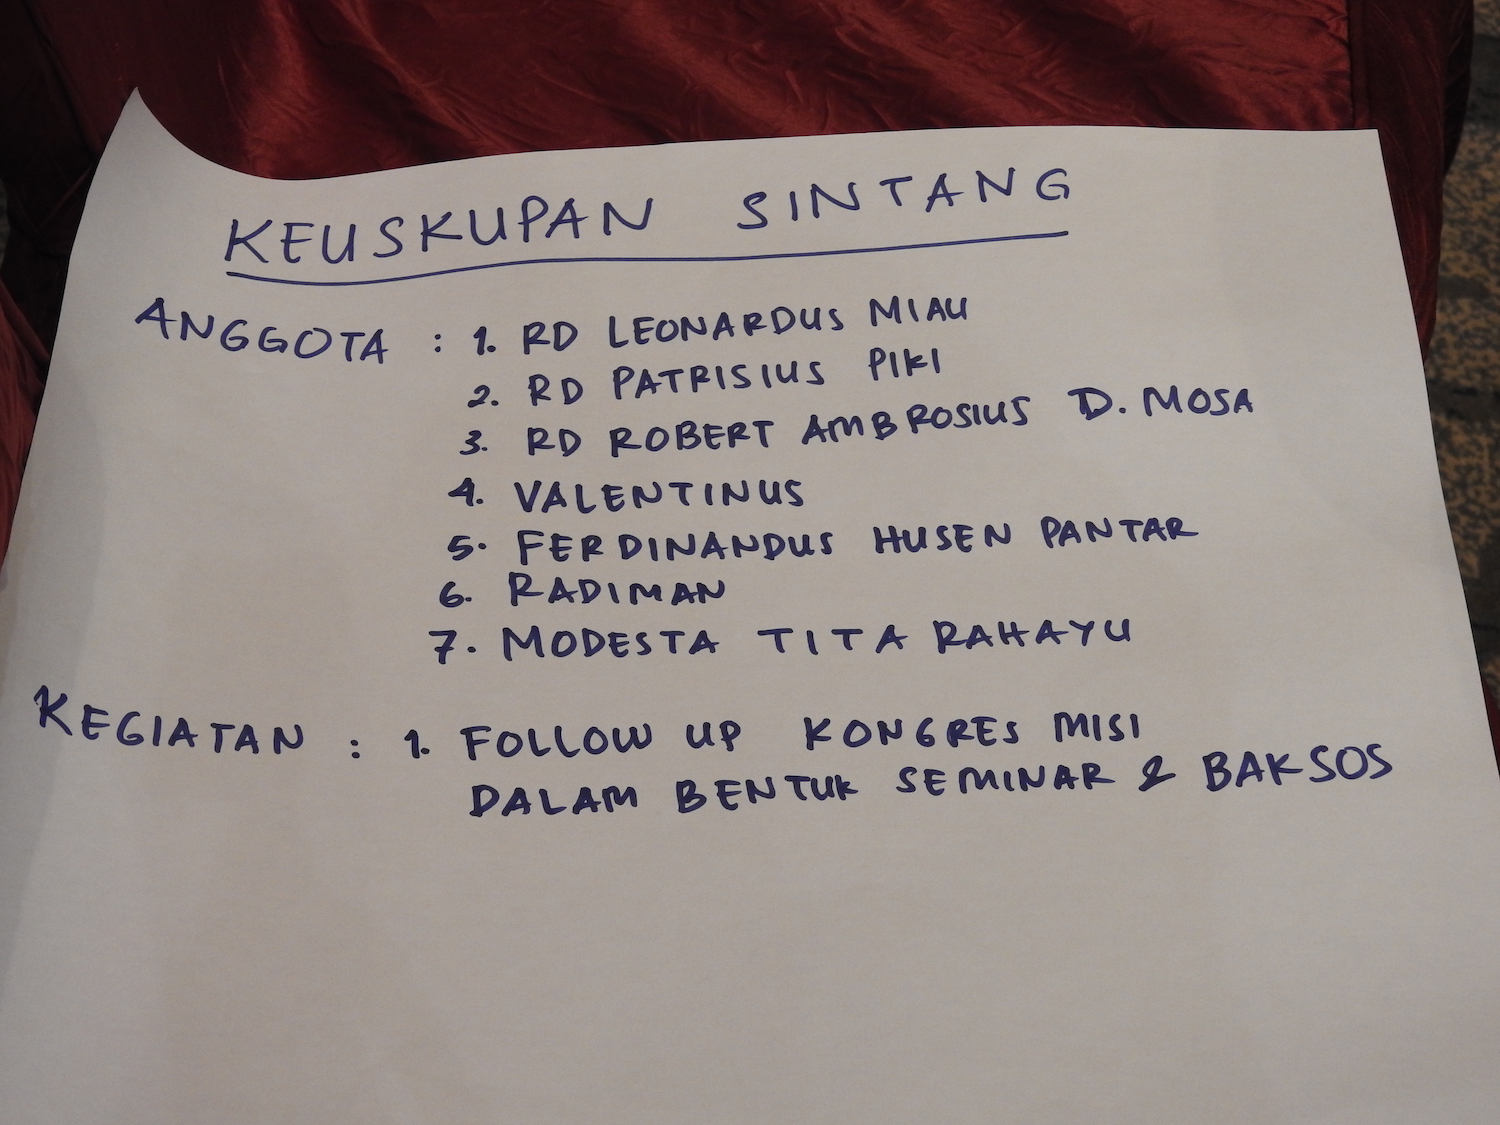 KEUSKUPAN SINTANG
ANGGOTA : 1. RD LEONARDUS MIAU
2. RD PATRISIUS PIKI
3. RD ROBERT AMBROSIUS D. MOSA
4. VALENTINUS
5. FERDINANDUS HUSEN PANTAR
6. RADIMAN
7. MODESTA TITA RAHAYU
KEGIATAN : 1. FOLLOW UP KONGRES MISI
DALAM BENTUK SEMINAR & BAKSOS